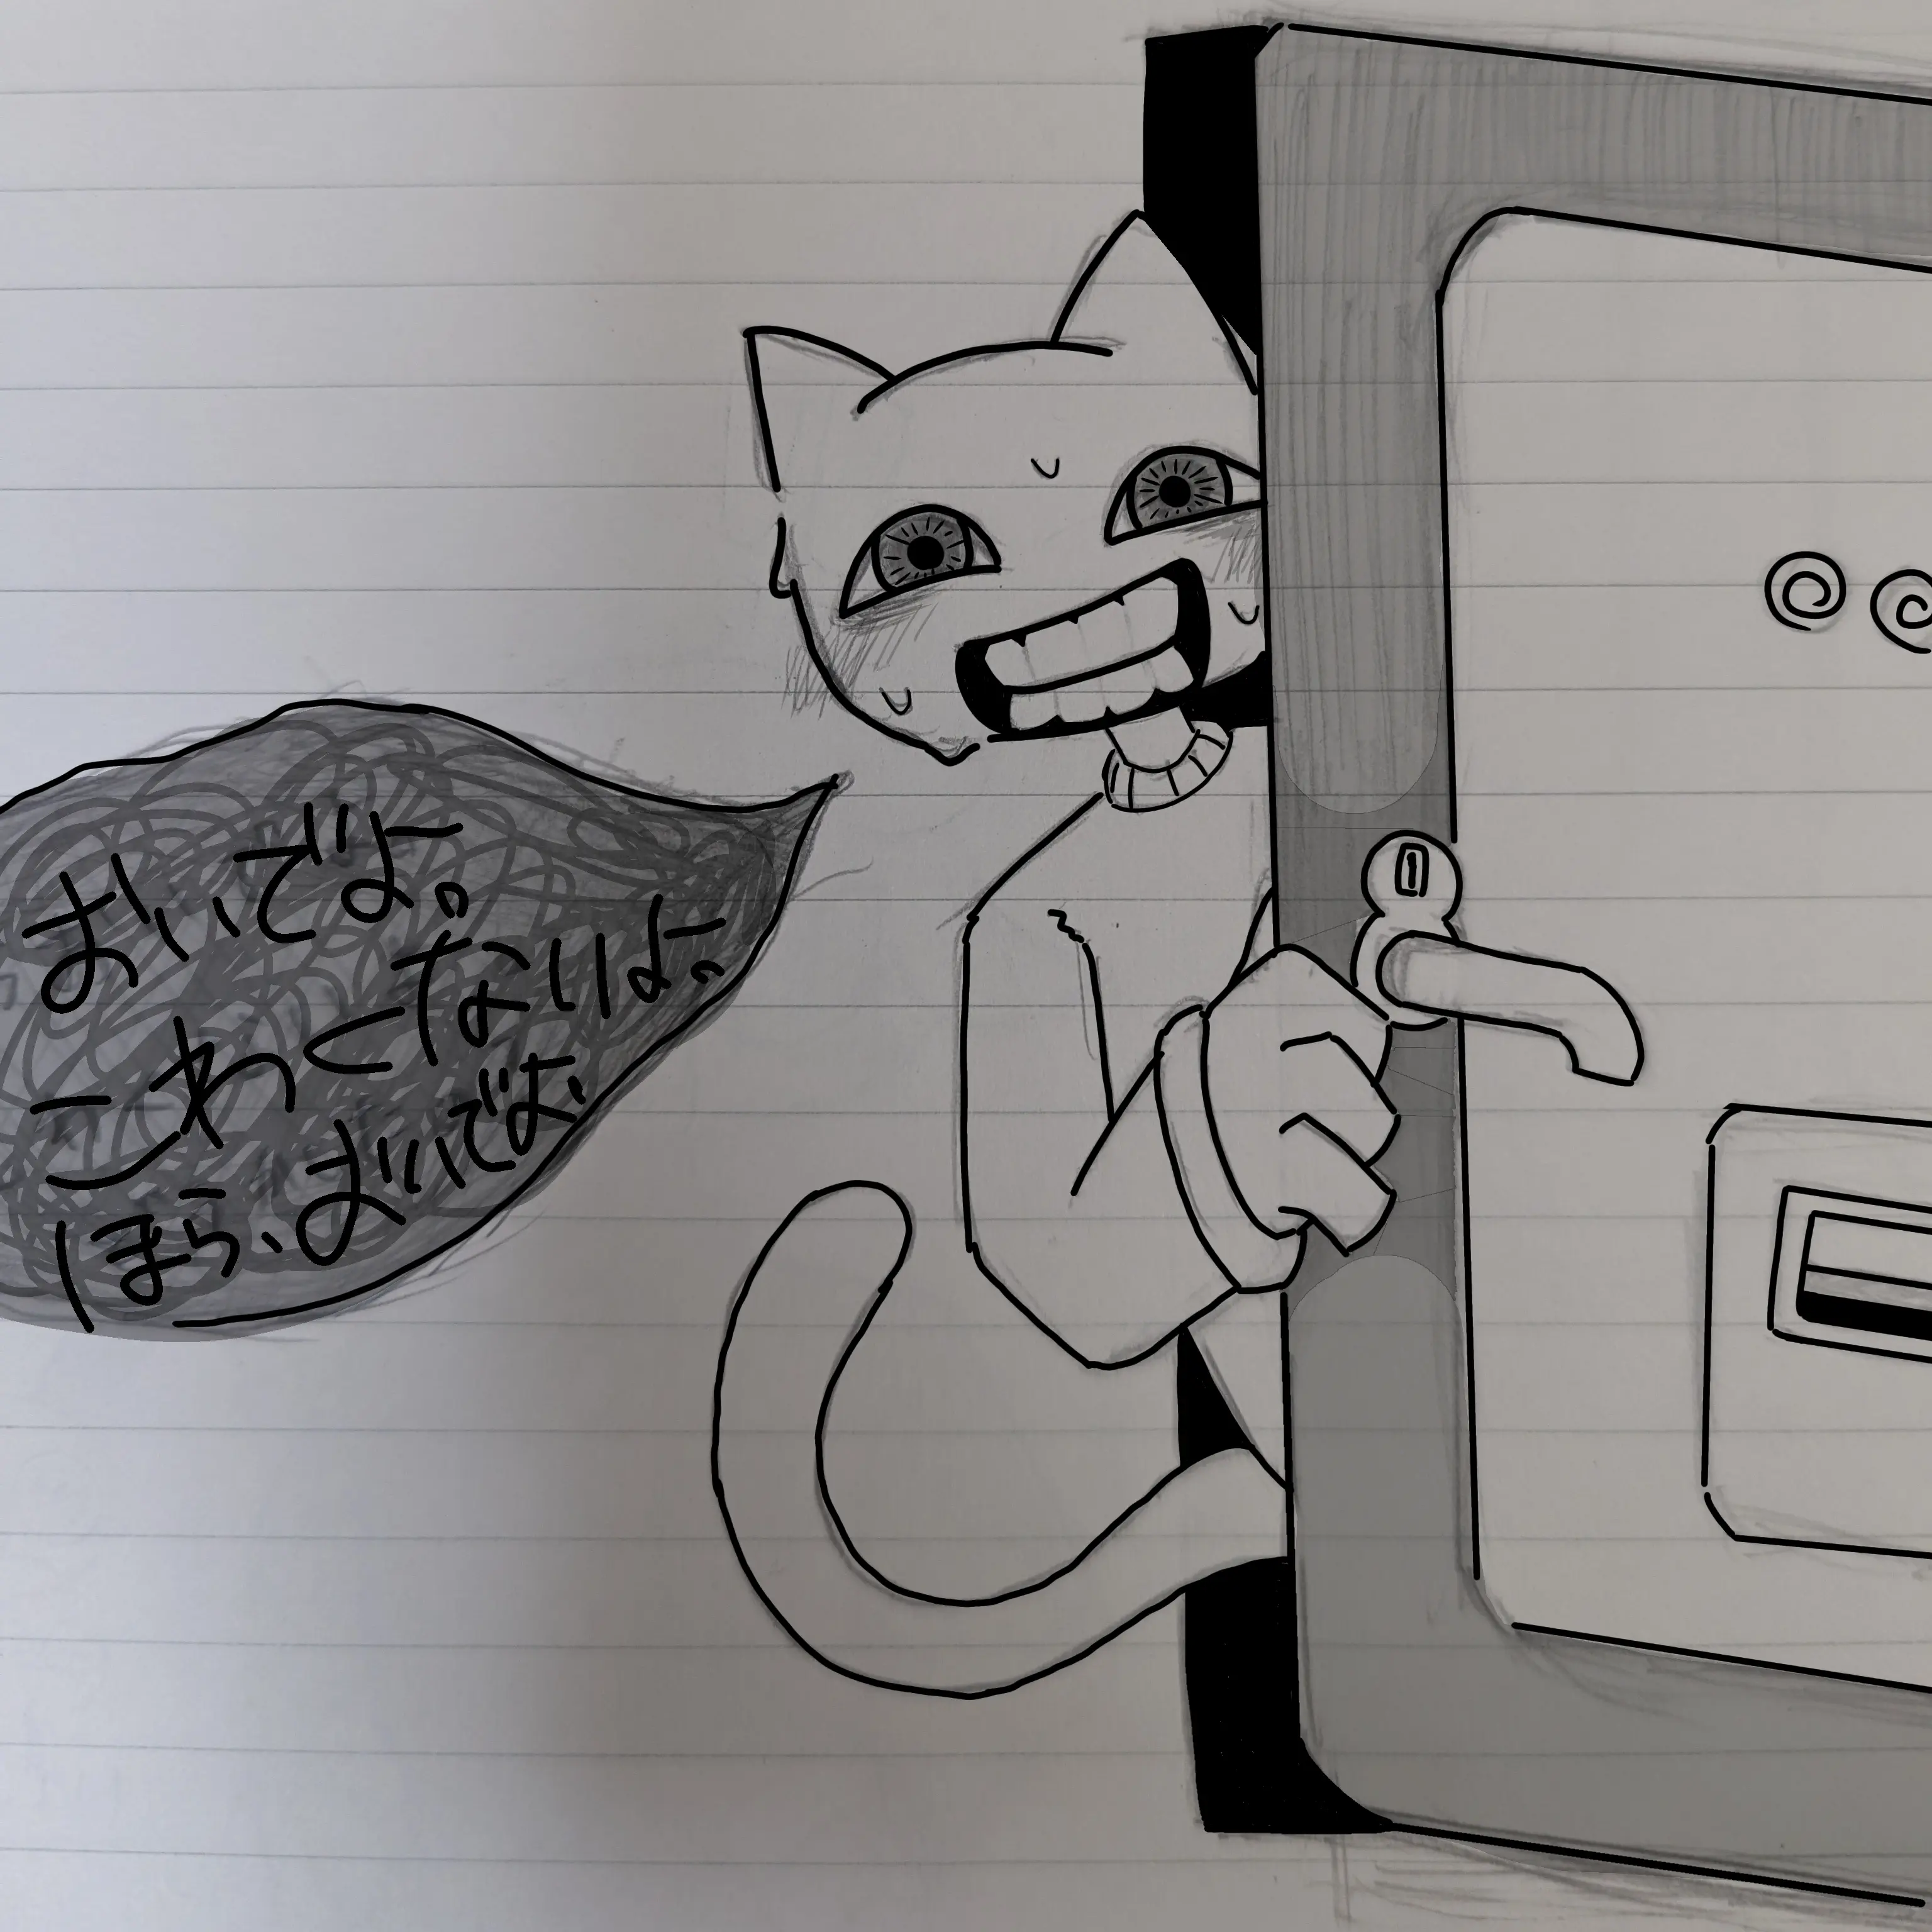 おいでよ。
こわくないよ。
ほら、おいでよ